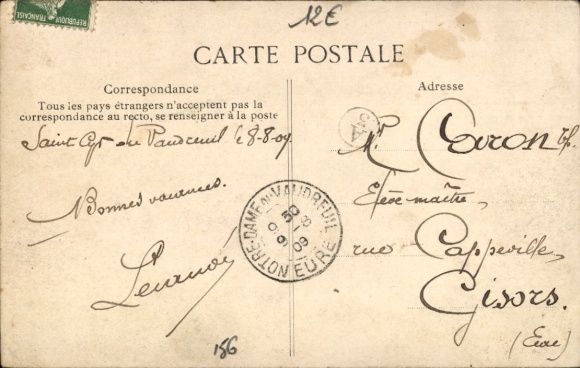 RÉPUBLIQUE FRANÇAISE
12€
CARTE POSTALE
Correspondance
Tous les pays étrangers n'acceptent pas la
correspondance au recto, se renseigner à la poste
Saint Cyr du Vaudreuil le 8-8-09
Bonnes vacances.
NOTRE-DAME-DU-VAUDREUIL
EURE
156
Adresse
Mr Caron
Elève-maître,
rue Cappeville,
Gisors.
(Eure)